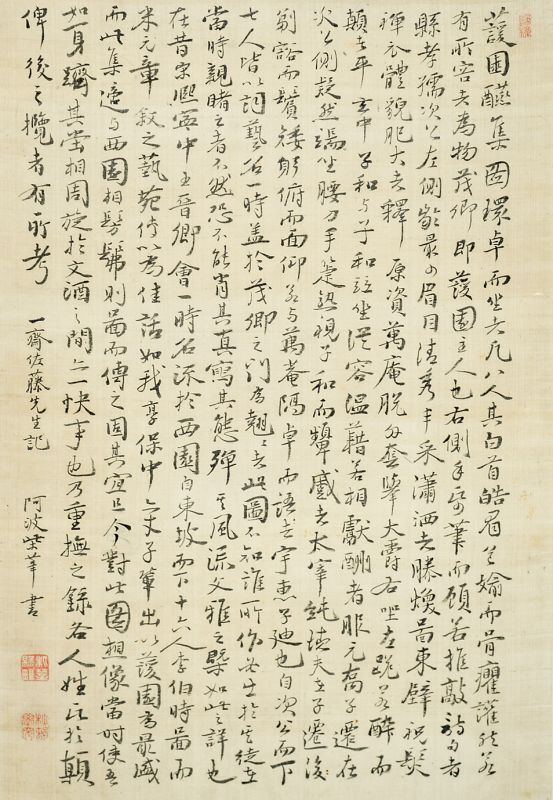 蘐園讌集圖環卓而坐者凡八人其白首皓眉
有所容者為物茂卿即蘐園主人也右側手要筆而顧苦推敲詩句者
縣孝孺次公左側齡最少眉目清秀丰采瀟洒者滕煥圖東壁祝髮
禪衣體貌肥大者釋原資萬庵脫
顛者平玄中子和与子和竝坐從容溫藉若相獻酬者服元喬子遷在
次公側凝然端坐腰刀手箑熟視子和而顰蹙者太宰純德夫在子遷後
而鬚矮躬俯而面仰若与萬菴隔卓而語者宇惠子迪也自次公而下
七人皆以詞藝名一時蓋於茂卿之門為翹翹者此圖不知誰所作必出於其徒在
當時親睹之者不然恐不能肖其真寫其態彈其風流文雅之槩如此之詳也
在昔宋熙寧中王晉卿會一時名流於西園自東坡而下十六人李伯時圖而
米元章敘之藝苑傳以為佳話如我享保中文子輩出以蘐園為最盛
而此集適与西園相髣髴則圖而傳之固其宜且今對此圖想像當時使吾
如身躋其堂相周旋於文酒之間亦一快事也乃重撫之錄各人姓氏於顛
俾後之攬者有所考
一齋佐藤先生記
阿波 華書